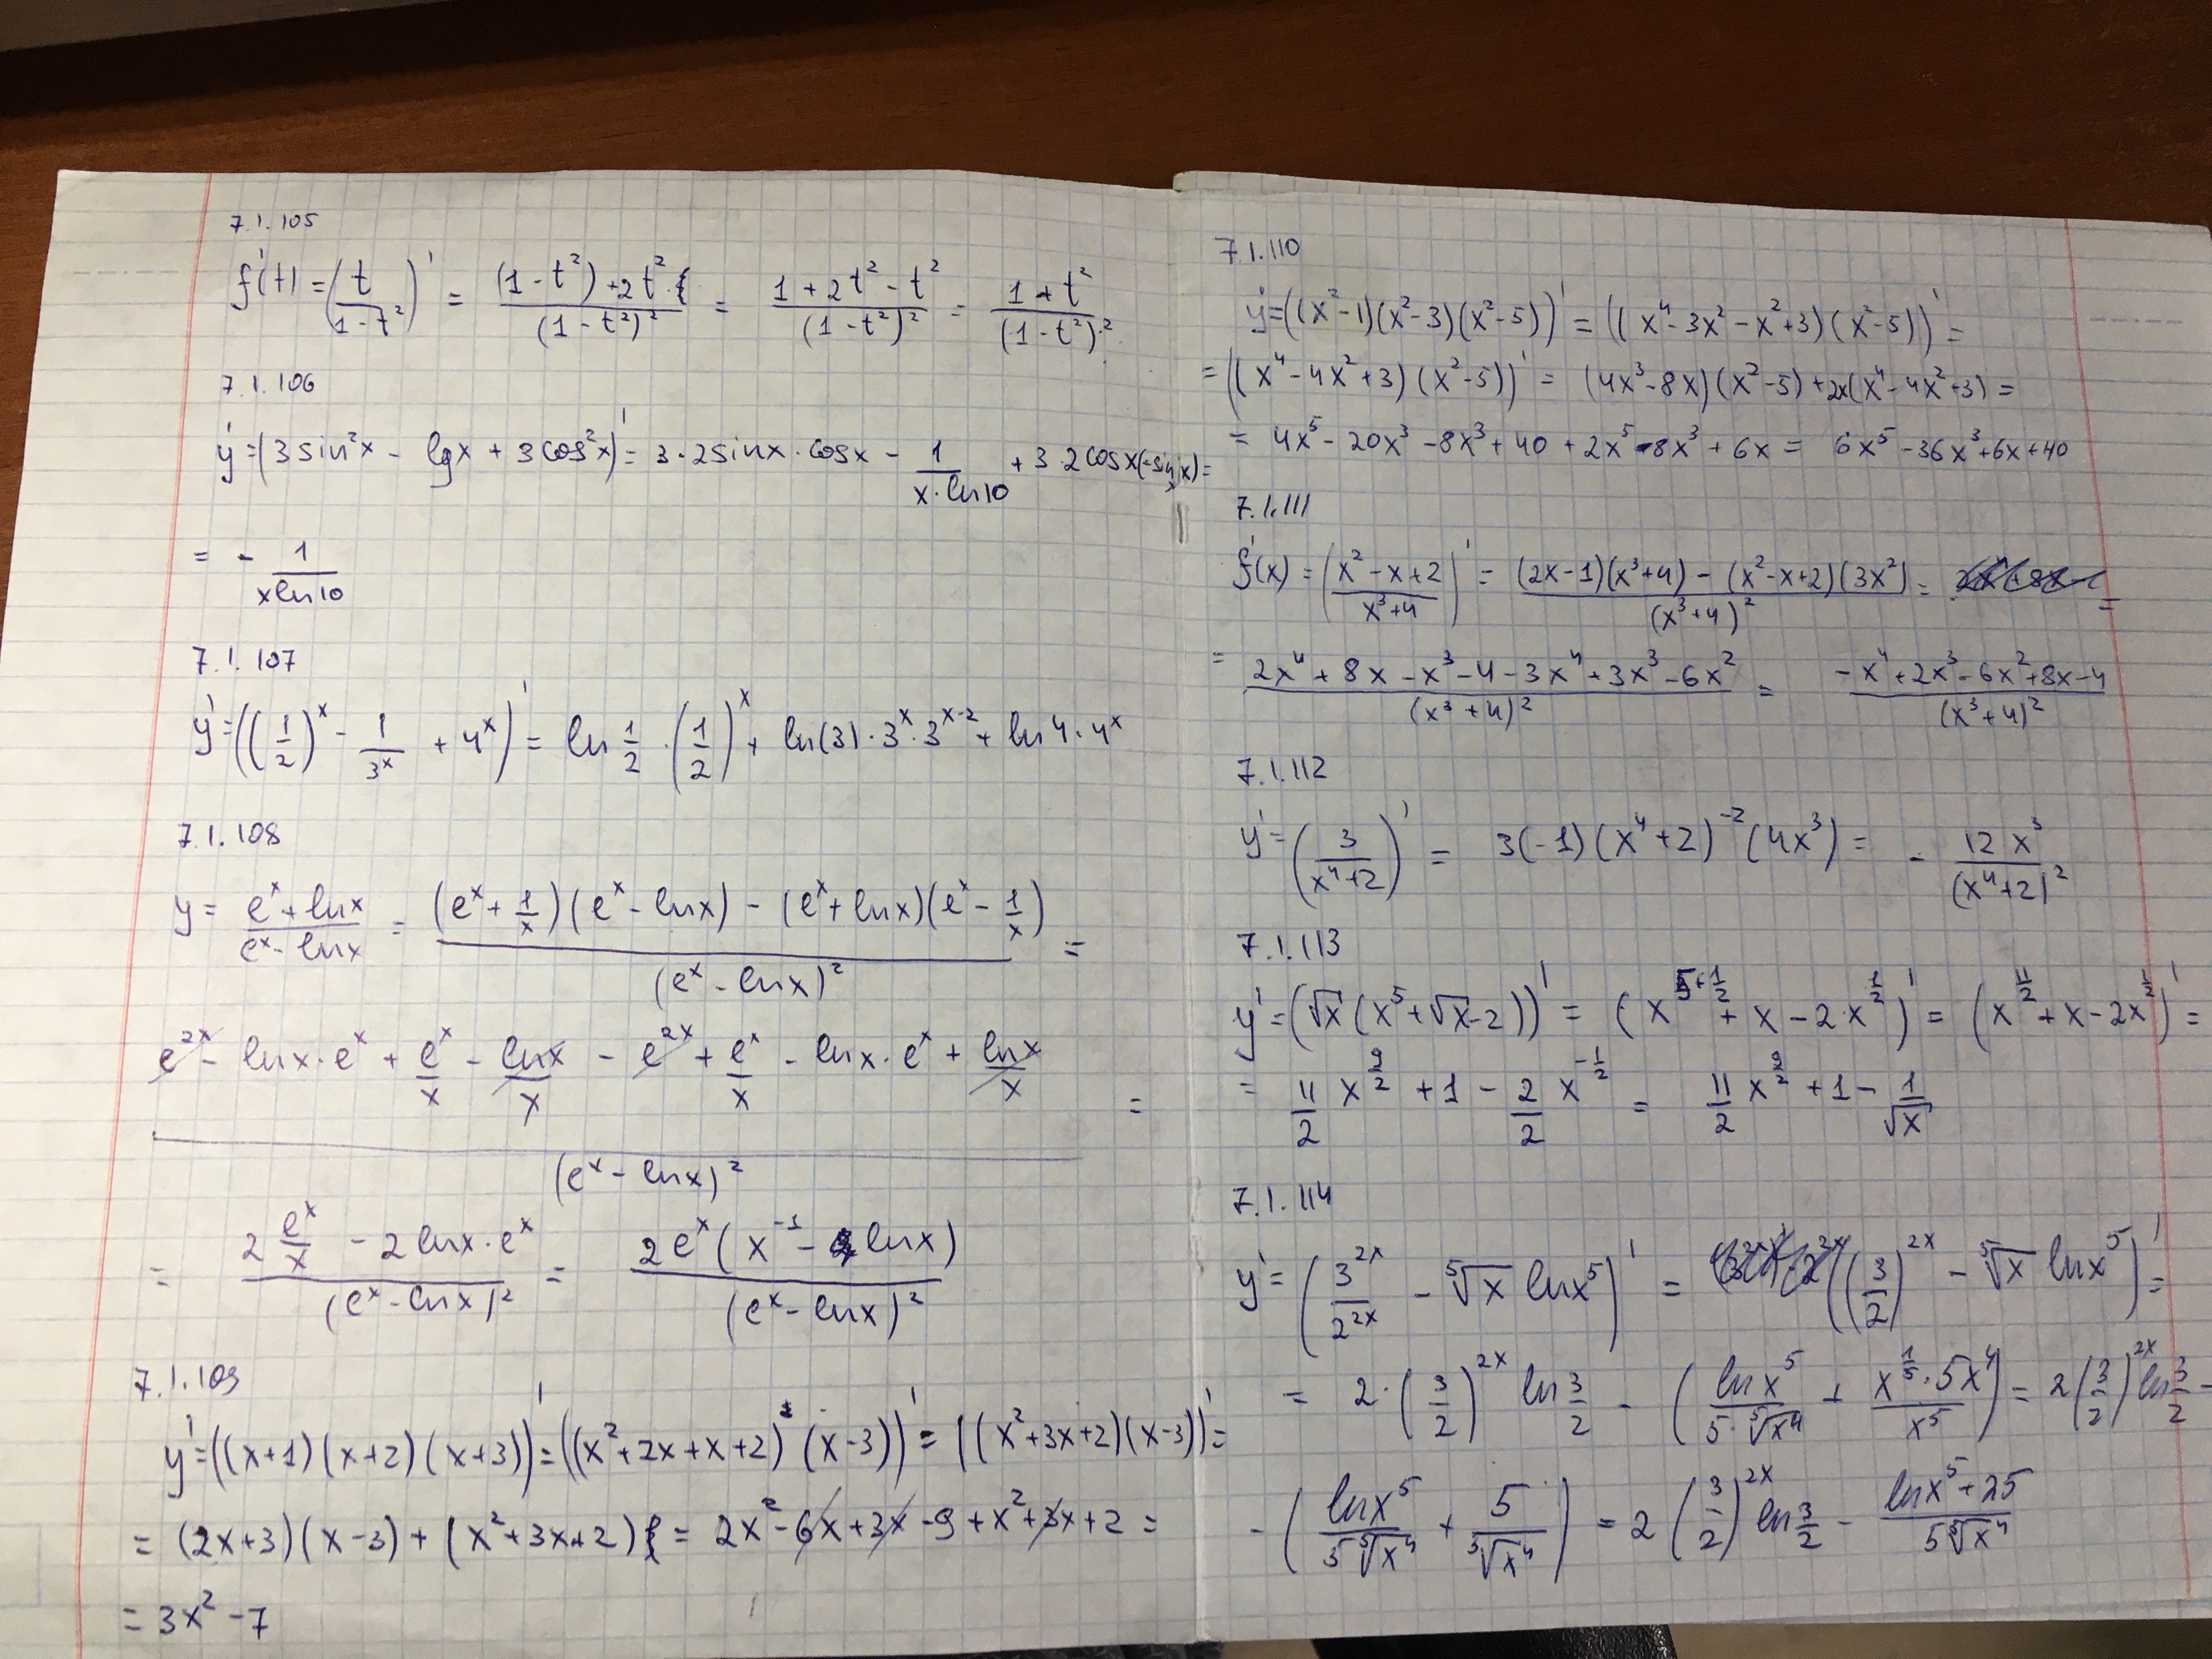 7.1.105
f'(t) = (t/(1-t²))' = ((1-t²)+2t²)/(1-t²)² = (1+2t²-t²)/(1-t²)² = (1+t²)/(1-t²)²
7.1.106
y' = (3sin²x - lgx + 3cos²x)' = 3·2sinx·cosx - 1/(x·ln10) + 3·2cosx(-sinx) =
= - 1/(xln10)
7.1.107
y' = ((1/2)^x - 1/3^x + 4^x)' = ln 1/2 · (1/2)^x + ln(3)·3^x·3^(x·-2) + ln4·4^x
7.1.108
y = (e^x + lnx)/(e^x - lnx) = ((e^x + 1/x)(e^x - lnx) - (e^x + lnx)(e^x - 1/x))/(e^x - lnx)² =
(e^2x - lnx·e^x + e^x/x - lnx/x - e^2x + e^x/x - lnx·e^x + lnx/x)/(e^x - lnx)² =
= (2 e^x/x - 2lnx·e^x)/(e^x - lnx)² = (2e^x(x^-1 - lnx))/(e^x - lnx)²
7.1.109
y' = ((x+1)(x+2)(x+3))' = ((x²+2x+x+2)(x-3))' = ((x²+3x+2)(x-3))' =
= (2x+3)(x-3) + (x²+3x+2) = 2x² - 6x + 3x - 9 + x² + 3x + 2 =
= 3x² - 7
7.1.110
y' = ((x²-1)(x²-3)(x²-5))' = ((x⁴-3x²-x²+3)(x²-5))' =
= ((x⁴-4x²+3)(x²-5))' = (4x³-8x)(x²-5) + 2x(x⁴-4x²+3) =
= 4x⁵ - 20x³ - 8x³ + 40 + 2x⁵ - 8x³ + 6x = 6x⁵ - 36x³ + 6x + 40
7.1.111
f'(x) = ((x²-x+2)/(x³+4))' = ((2x-1)(x³+4) - (x²-x+2)(3x²))/(x³+4)² =
= (2x⁴+8x-x³-4-3x⁴+3x³-6x²)/(x³+4)² = (-x⁴+2x³-6x²+8x-4)/(x³+4)²
7.1.112
y' = (3/(x⁴+2))' = 3(-1)(x⁴+2)^-2(4x³) = - 12x³/(x⁴+2)²
7.1.113
y' = (√x(x⁵+√x-2))' = (x^(5+1/2) + x - 2·x^(1/2))' = (x^(11/2) + x - 2x^(1/2))' =
= 11/2 x^(9/2) + 1 - 2/2 x^(-1/2) = 11/2 x^(9/2) + 1 - 1/√x
7.1.114
y' = (3^2x/2^2x - ⁵√x lnx⁵)' = ((3/2)^2x - ⁵√x lnx⁵)' =
= 2·(3/2)^2x ln 3/2 - (lnx⁵/(5·⁵√x⁴) + (x^(1/5)·5x⁴)/x⁵) = 2(3/2)^2x ln 3/2 -
- (lnx⁵/(5⁵√x⁴) + 5/⁵√x⁴) = 2(3/2)^2x ln 3/2 - (lnx⁵+25)/(5⁵√x⁴)